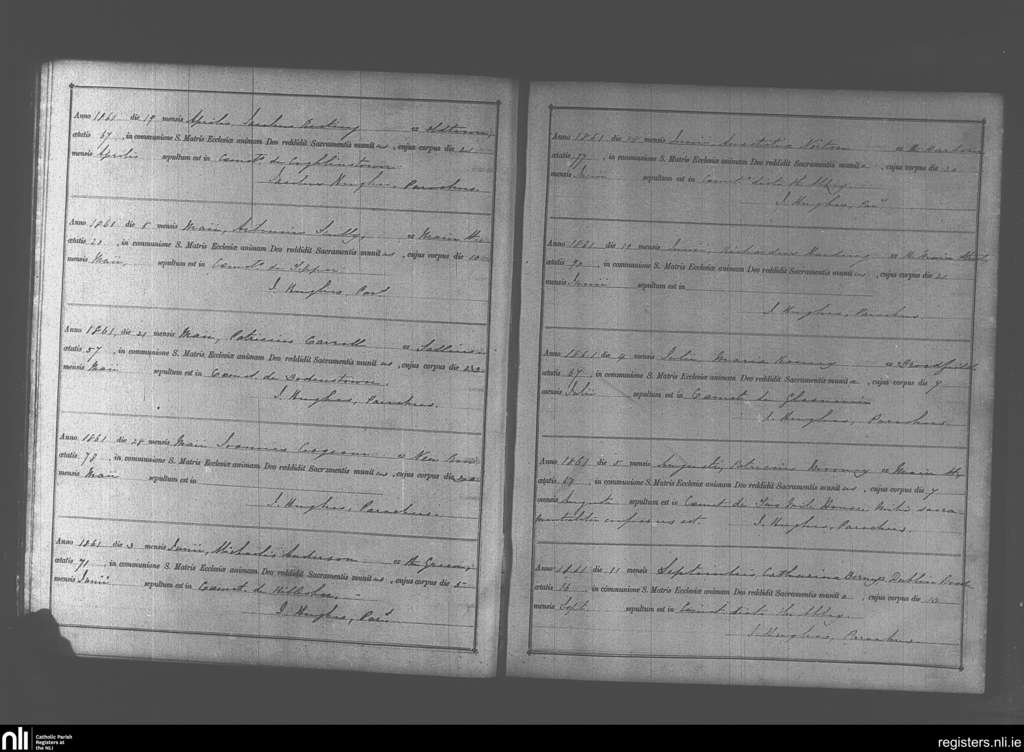 Anno 1861 die 19 mensis Aprilis Jacobus Keating ex Oldtown,
ætatis 67, in communione S. Matris Ecclesiæ animam Deo reddidit Sacramentis munitus, cujus corpus die 21
mensis Aprilis sepultum est in Cæmt° de
Jacobus Hughes, Parochus.
Anno 1861 die 8 mensis Maii, Antonius ex Main St
ætatis 23, in communione S. Matris Ecclesiæ animam Deo reddidit Sacramentis munitus, cujus corpus die 10
mensis Maii, sepultum est in Cæmt° de Tipper
J. Hughes, Par
Anno 1861, die 21 mensis Maii, Patricius Carroll ex Sallins
ætatis 57, in communione S. Matris Ecclesiæ animam Deo reddidit Sacramentis munitus, cujus corpus die 23
mensis Maii sepultum est in Cæmt de Bodenstown.
J. Hughes, Parochus.
Anno 1861 die 28 mensis Maii Joannes ex New Row
ætatis 78, in communione S. Matris Ecclesiæ animam Deo reddidit Sacramentis munitus, cujus corpus die
mensis Maii sepultum est in
J. Hughes, Parochus.
Anno 1861 die 3 mensis Junii, Michaelis Anderson ex the Green,
ætatis 71, in communione S. Matris Ecclesiæ animam Deo reddidit Sacramentis munitus, cujus corpus die 5
mensis Junii sepultum est in Cæmt de Killashee.
J. Hughes, Par
Anno 1861 die 18 mensis Junii Anastatia ex the Harbour
ætatis 77, in communione S. Matris Ecclesiæ animam Deo reddidit Sacramentis munita, cujus corpus die 20
mensis Junii sepultum est in Cæmt° dicto the Abbey.
J. Hughes, Par
Anno 1861 die 19 mensis Junii Richardus ex the Main Street
ætatis 90, in communione S. Matris Ecclesiæ animam Deo reddidit Sacramentis munitus, cujus corpus die 21
mensis Junii sepultum est in
J. Hughes, Parochus.
Anno 1861 die 4 mensis Julii Maria ex Broadfield
ætatis 67, in communione S. Matris Ecclesiæ animam Deo reddidit Sacramentis munita, cujus corpus die 7
mensis Julii sepultum est in Cæmt de Glasnevin
J. Hughes, Parochus
Anno 1861 die 5 mensis Augusti, Patricius ex Main St,
ætatis 69, in communione S. Matris Ecclesiæ animam Deo reddidit Sacramentis munitus, cujus corpus die 7
mensis August sepultum est in Cæmt de Two Mile House. Mihi sacra-
mentaliter confessus est. J. Hughes, Parochus.
Anno 1861 die 11 mensis Septembris, Catharina Dublin Road
ætatis 76, in communione S. Matris Ecclesiæ animam Deo reddidit Sacramentis munita, cujus corpus die 13
mensis Sept. sepultum est in Cæmt dicto the Abbey.
J. Hughes, Parochus
nli Catholic Parish
Registers at
the NLI
registers.nli.ie